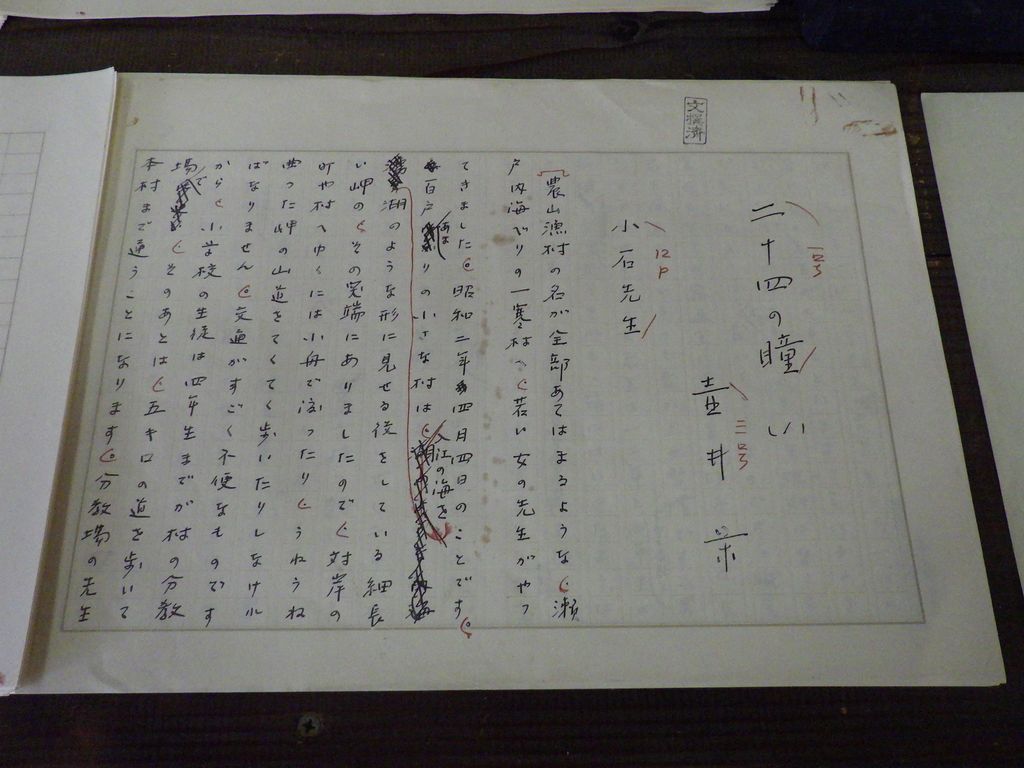 文揆済
二十四の瞳
一号
壺井栄
三号
小石先生
12P
農山漁村の名が全部あてはまるような、瀬
戸内海べりの一寒村へ、若い女の先生がやっ
てきました。昭和二年四月四日のことです。
百戸あまりの小さな村は、入江の海を
湖のような形に見せる役をしている細長
い岬の、その突端にありましたので、対岸の
町や村へゆくには小舟で渡ったり、うねうね
曲った岬の山道をてくてく歩いたりしなけれ
ばなりません。交通がすごく不便なものです
から、小学校の生徒は四年生までが村の分教
場で、そのあとは、五キロの道を歩いて
本村まで通うことになります。分教場の先生